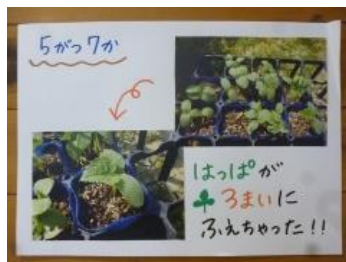 5がつ7か
はっぱが
3まいに
ふえちゃった!!